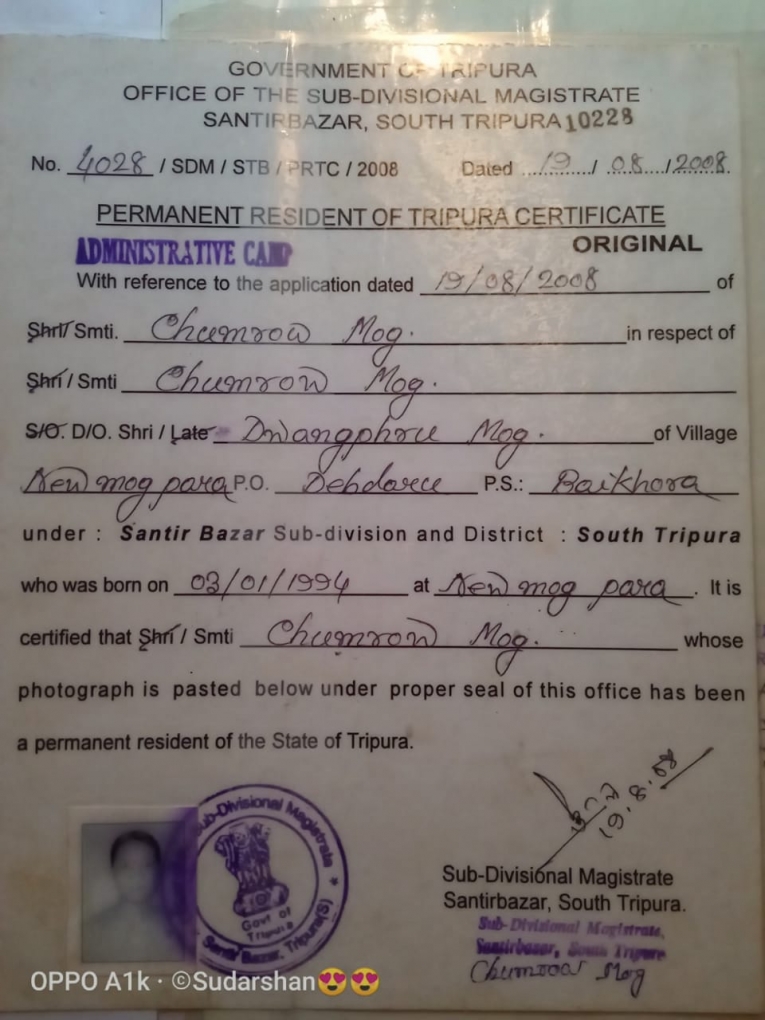 GOVERNMENT OF TRIPURA
OFFICE OF THE SUB-DIVISIONAL MAGISTRATE
SANTIRBAZAR, SOUTH TRIPURA 10228
No. 4028 / SDM / STB / PRTC / 2008 Dated 19 / 08 / 2008
PERMANENT RESIDENT OF TRIPURA CERTIFICATE
ADMINISTRATIVE CAMP ORIGINAL
With reference to the application dated 19/08/2008 of
Shri/ Smti. Chumrow Mog. in respect of
Shri / Smti Chumrow Mog.
S/O. D/O. Shri / Late Dwangphru Mog. of Village
New mog para P.O. Debdaru P.S.: Baikhora
under : Santir Bazar Sub-division and District : South Tripura
who was born on 03/01/1994 at New mog para . It is
certified that Shri / Smti Chumrow Mog. whose
photograph is pasted below under proper seal of this office has been
a permanent resident of the State of Tripura.
19.8.08
Sub-Divisional Magistrate
Govt of
Tripura
Santir Bazar, Tripura(S)
Sub-Divisional Magistrate
Santirbazar, South Tripura.
Sub-Divisional Magistrate,
Santirbazar, South Tripura
Chumrow Mog
OPPO A1k · ©Sudarshan😍😍